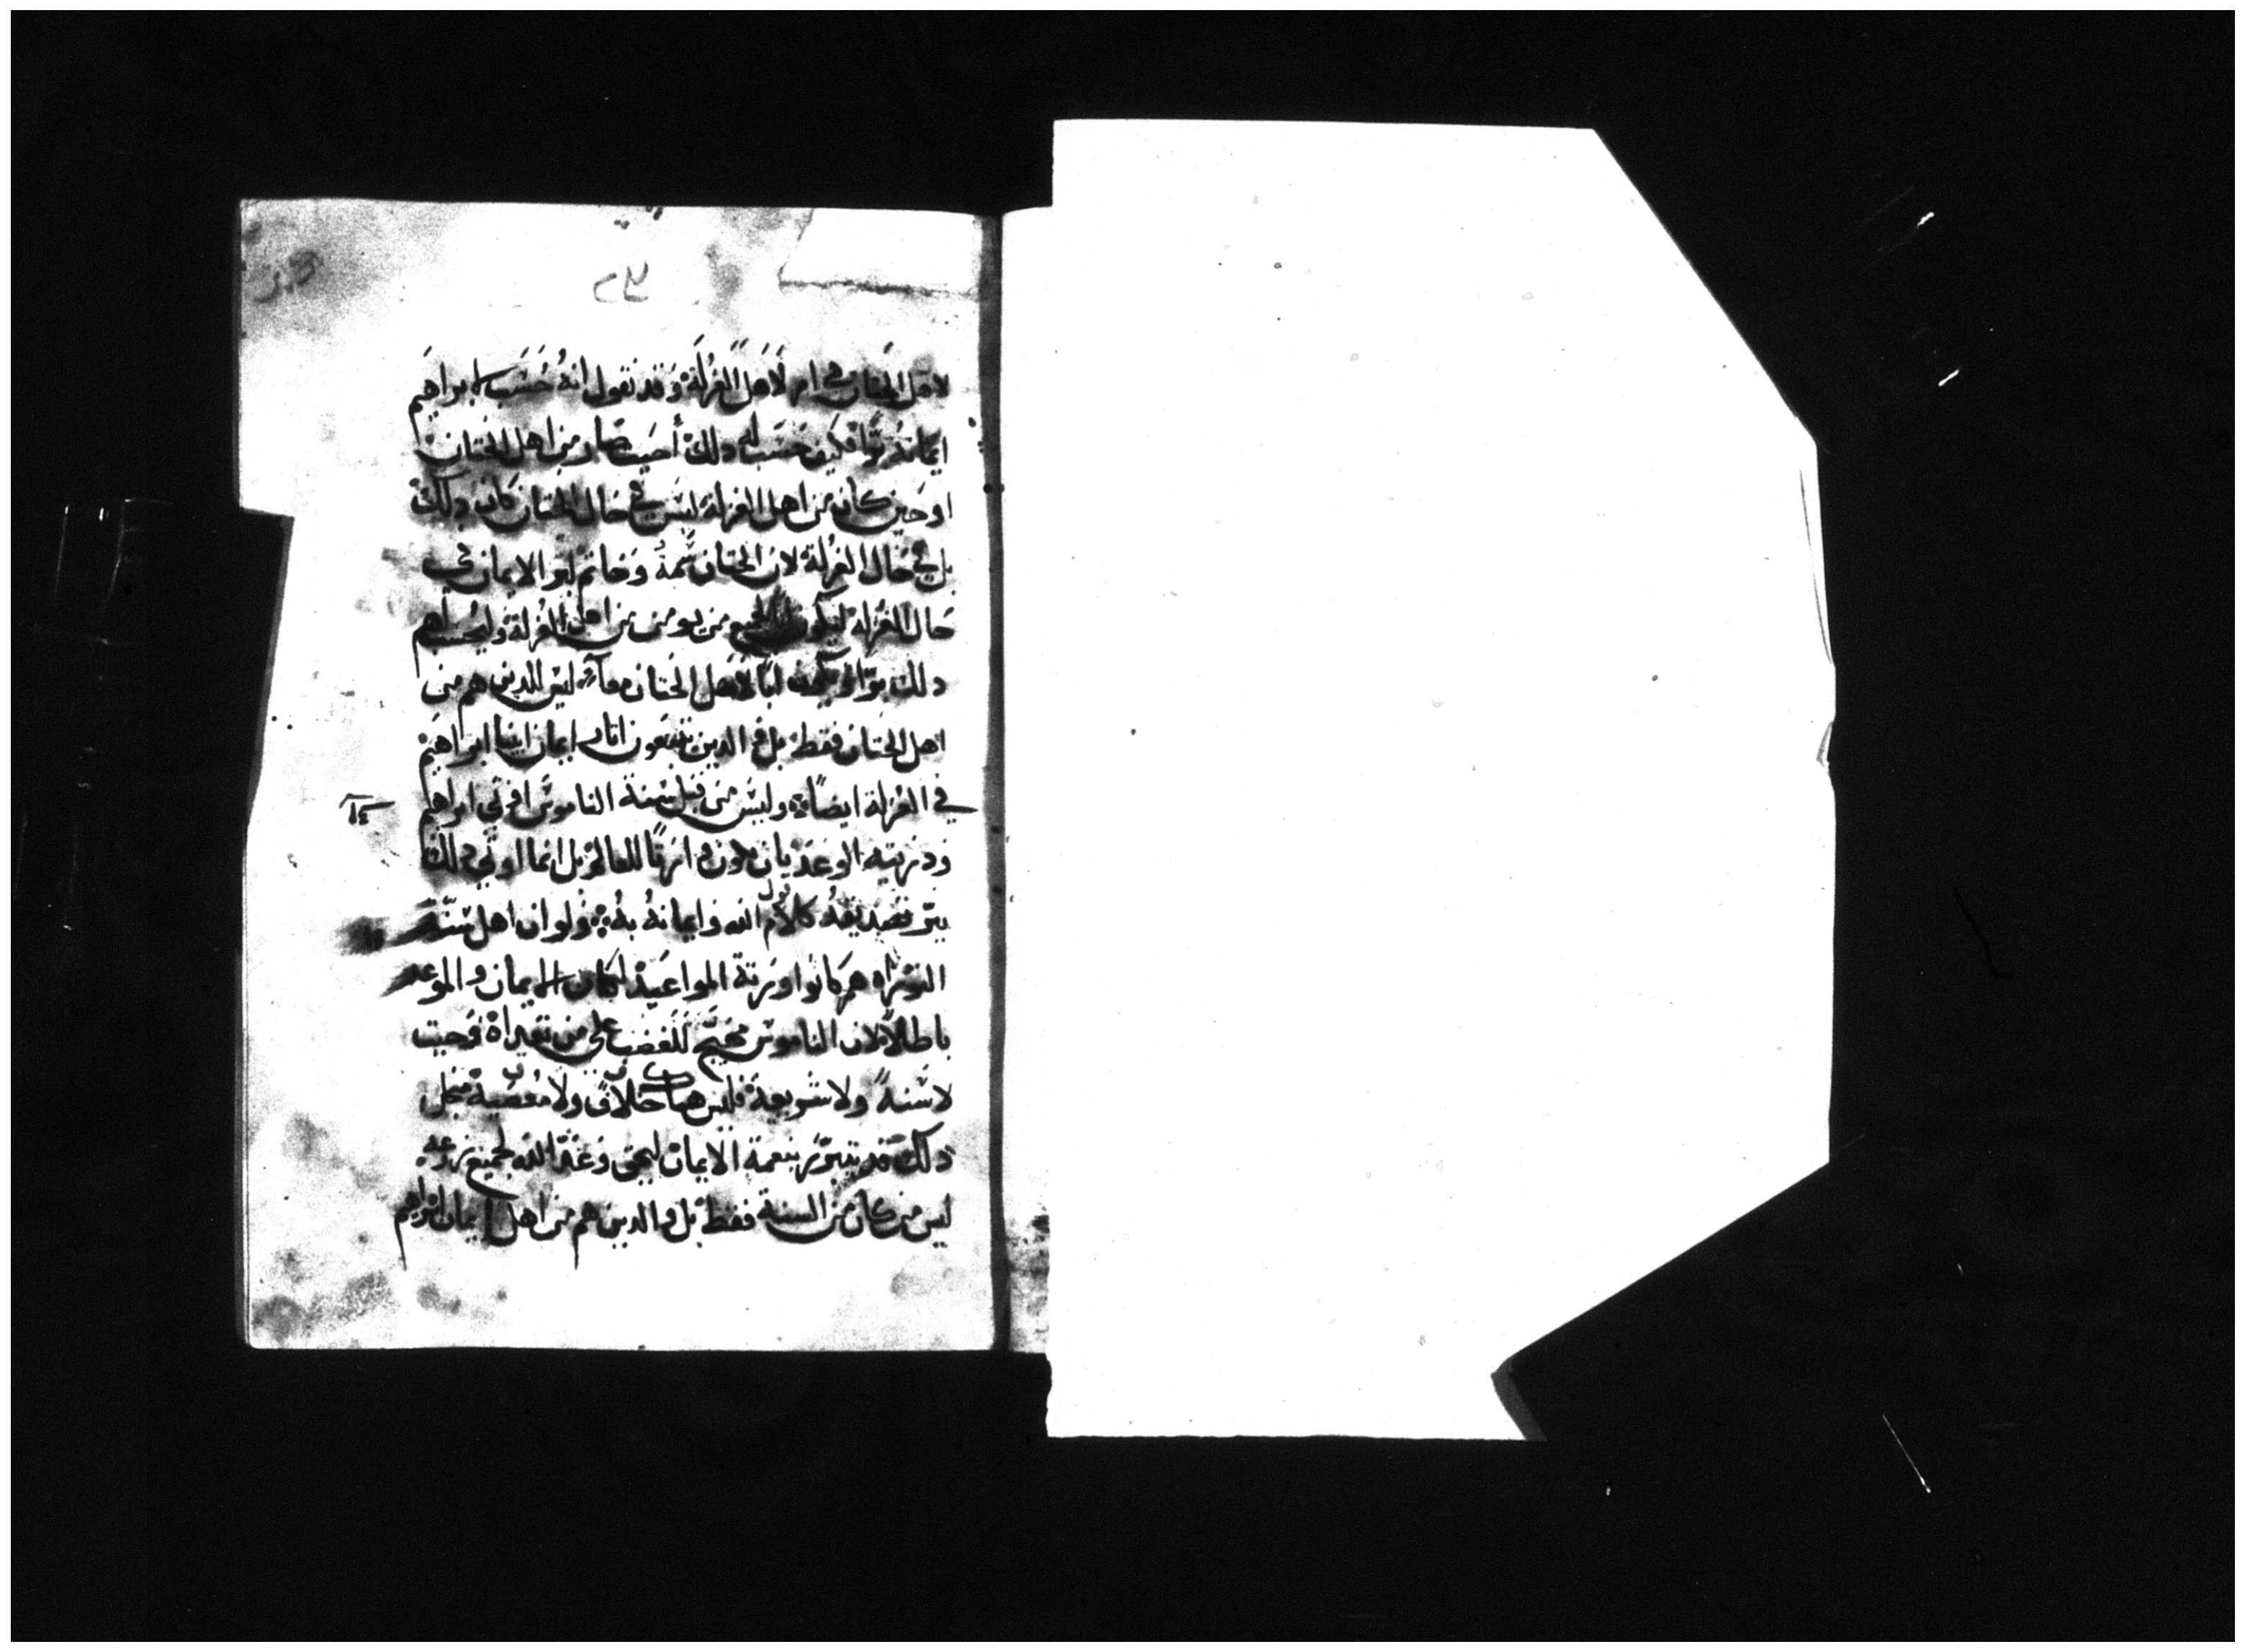 لاهل الختان في ام لاهل الغرلة وقد نقول انه حسب لابراهيم
ايمانه برا فكيف حسب له دلك أحيث صار من اهل الختان
اوحين كان من اهل الغرلة ليس في حال الختان كان دلك
بل في حال الغرلة لان الختان سمة وخاتم لبر الايمان في
حال الغرلة ليكون لجميع من يومن من اهل الغرلة وليحسب لهم
دلك برا ابا لاهل الختان ليس للدين هم من
اهل الختان فقط بل و الدين يتبعون اتار ايمان ابينا ابراهيم
في الغرلة ايضا وليس من قبل سنة الناموس اوتي ابراهيم
ودريته الوعد بان يكون وارتا للعالم بل انما اوتي دلك
ببر تصديقه كلام الله وايمانه به ولو ان اهل سنة
التوراه هم كانوا ورتة المواعيد لكان الايمان والموعد
باطلا لان الناموس مهيج للغضب على من تعداه وحيت
لا سنة ولا شريعة فليس هناك خلاف ولا معصية فمن اجل
دلك قد نتبرر بنعمة الايمان ليحق وعد الله لجميع زرعه
ليس من كان من السنة فقط بل والدين هم من اهل ايمان ابراهيم